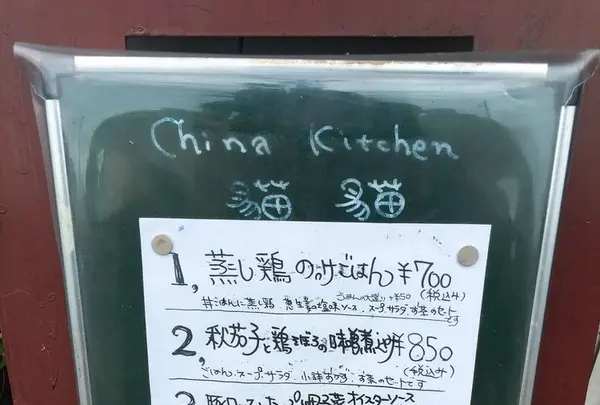 China Kitchen
貓 貓
1, 蒸し鶏のっけごはん ¥700
ごはんの大盛り +¥50 (税込み)
丼ごはんに蒸し鶏 生姜の塩味ソース、スープ、サラダ お茶のセットです
2, 秋茄子と鶏そぼろの味噌煮込み ¥850
(税込み)
ごはん、スープ、サラダ、小鉢おかず、お茶のセットです
3 オイスターソース